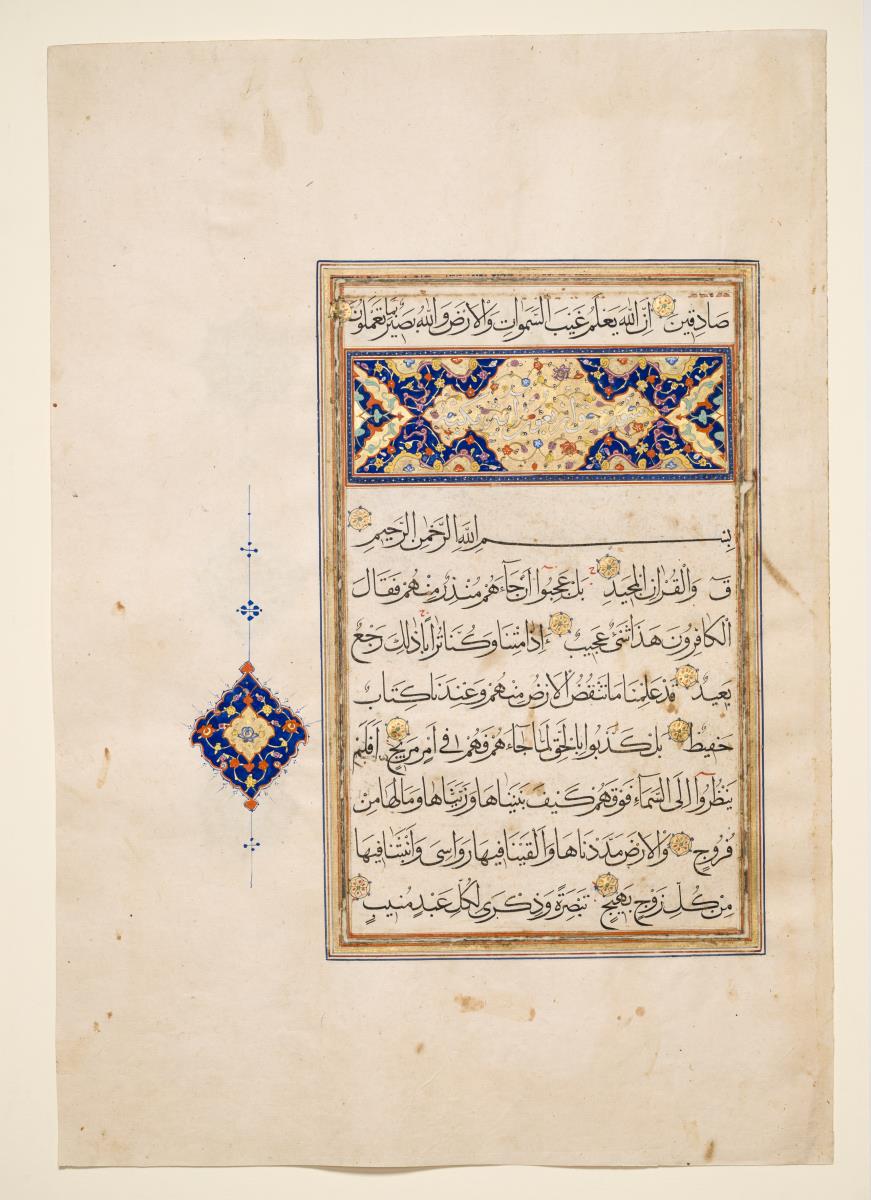 صَادِقِينَ اِنَّ اللهَ يَعْلَمُ غَيْبَ السَّمٰوَاتِ وَالْاَرْضِ وَاللهُ بَصِيرٌ بِمَا تَعْمَلُونَ
بِسْمِ اللهِ الرَّحْمٰنِ الرَّحِيمِ
قٓ وَالْقُرْاٰنِ الْمَجِيدِ بَلْ عَجِبُوا اَنْ جَآءَهُمْ مُنْذِرٌ مِنْهُمْ فَقَالَ
الْكَافِرُونَ هٰذَا شَىْءٌ عَجِيبٌ ءَاِذَا مِتْنَا وَكُنَّا تُرَابًا ذٰلِكَ رَجْعٌ
بَعِيدٌ قَدْ عَلِمْنَا مَا تَنْقُصُ الْاَرْضُ مِنْهُمْ وَعِنْدَنَا كِتَابٌ
حَفِيظٌ بَلْ كَذَّبُوا بِالْحَقِّ لَمَّا جَآءَهُمْ فَهُمْ فِى اَمْرٍ مَرِيجٍ اَفَلَمْ
يَنْظُرُوٓا اِلَى السَّمَآءِ فَوْقَهُمْ كَيْفَ بَنَيْنَاهَا وَزَيَّنَّاهَا وَمَا لَهَا مِنْ
فُرُوجٍ وَالْاَرْضَ مَدَدْنَاهَا وَاَلْقَيْنَا فِيهَا رَوَاسِىَ وَاَنْبَتْنَا فِيهَا
مِنْ كُلِّ زَوْجٍ بَهِيجٍ تَبْصِرَةً وَذِكْرٰى لِكُلِّ عَبْدٍ مُنِيبٍ